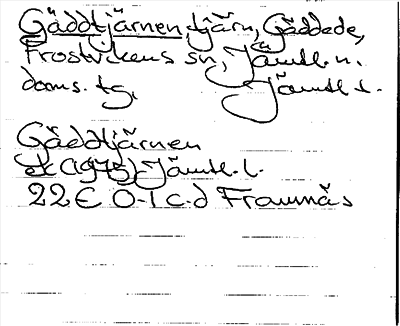 Gäddtjärnen, tjärn, Gäddede,
Frostvikens sn, Jämtl. n.
doms. tg. Jämtl. l.
Gäddtjärnen
ek (1975) Jämtl. l.
22E 0-1 c-d Framnäs